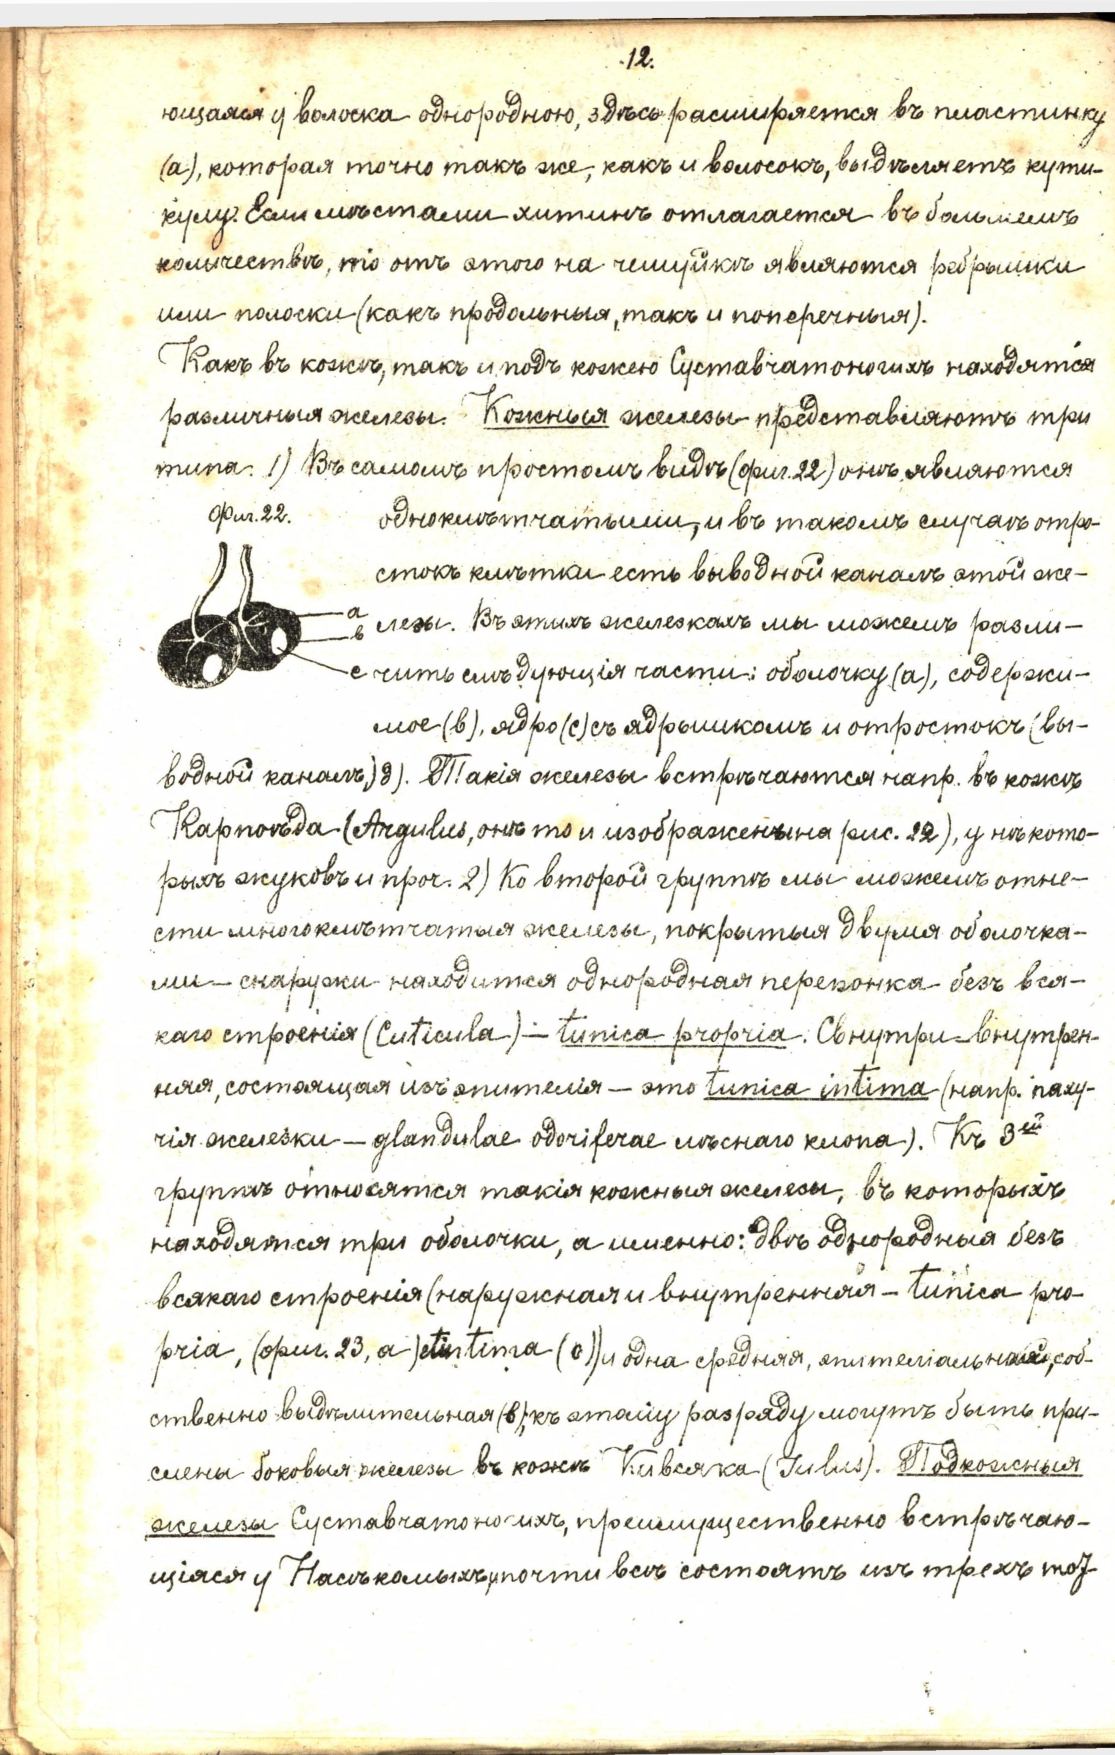 12.
ющаяся у волоска однородною, здѣсь расширяется въ пластинку
(а), которая точно такъ же, какъ и волосокъ, выдѣляетъ кути-
кулу. Если мѣстами хитинъ отлагается въ большемъ
количествѣ, то отъ этого на чешуйкѣ являются ребрышки
или полоски (какъ продольныя, такъ и поперечныя).
Какъ въ кожѣ, такъ и подъ кожею Суставчатоногихъ находятся
различныя железы. Кожныя железы представляютъ три
типа: 1) Въ самомъ простомъ видѣ (фиг. 22) онѣ являются
Фиг. 22.
одноклѣтчатыми, и въ такомъ случаѣ отро-
стокъ клѣтки есть выводной каналъ этой же-
а
в
лезы. Въ этихъ железкахъ мы можемъ разли-
с
чить слѣдующія части: оболочку (а), содержи-
мое (в), ядро (с) съ ядрышкомъ и отростокъ (вы-
водной каналъ) д). Такія железы встрѣчаются напр. въ кожѣ
Карпоѣда (Argulus, онѣ то и изображены на рис. 22), у нѣкото-
рыхъ жуковъ и проч. 2) Ко второй группѣ мы можемъ отне-
сти многоклѣтчатыя железы, покрытыя двумя оболочка-
ми — снаружи находится однородная перепонка безъ вся-
каго строенія (Cuticula) — tunica propria. Снутри — внутрен-
няя, состоящая изъ эпителія — это tunica intima (напр. паху-
чія железки — glandulae odoriferae лѣснаго клопа). Къ 3ій
группѣ относятся такія кожныя железы, въ которыхъ
находятся три оболочки, а именно: двѣ однородныя безъ
всякаго строенія (наружная и внутренняя — tunica pro-
pria, (фиг. 23, а) et intima (с)) и одна средняя, эпителіальная, соб-
ственно выдѣлительная (в); къ этому разряду могутъ быть при-
слены боковыя железы въ кожѣ Кивсяка (Iulus). Подкожныя
железы Суставчатоногихъ, преимущественно встрѣчаю-
щіяся у Насѣкомыхъ, почти всѣ состоятъ изъ трехъ